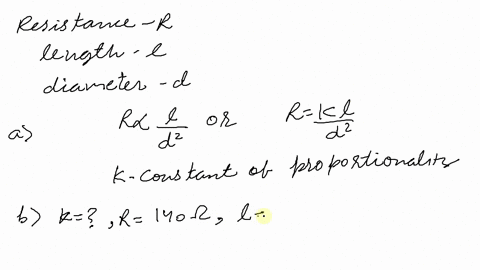 Resistance - R
length - l
diameter - d
a) R ∝ l/d² or R = Kl/d²
K - constant of proportionality
b) K = ?, R = 140 Ω, l =